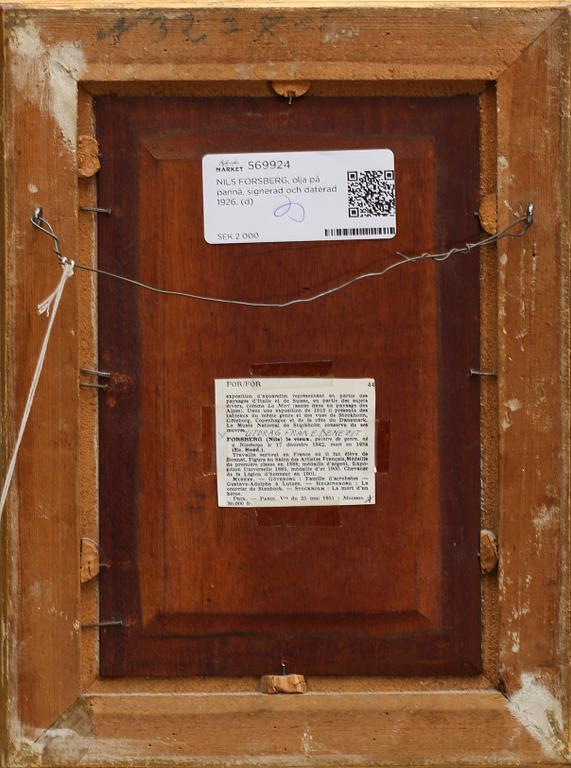 MARKET 569924
NILS FORSBERG, olja på
pannå, signerad och daterad
1926. (d)
SEK 2 000
FOR/FOR 44
exposition d'aquarelles représentant en partie des
paysages d'Italie et de Suisse, en partie des sujets
divers, comme La Mort (assise dans un paysage des
Alpes). Dans une exposition de 1915 il présenta des
tableaux du même genre et des vues de Stockholm,
Göteborg, Copenhague et de la côte du Danemark.
Le Musée National de Stockholm conserve de ses
œuvres.
UTDRAG FRAN E BENEZIT
FORSBERG (Nils) le vieux, peintre de genre, né
à Riseberga le 17 décembre 1842, mort en 1934
(Ec. Suéd.).
Travailla surtout en France où il fut élève de
Bonnat. Figura au Salon des Artistes Français, Médaille
de première classe en 1888; médaille d'argent, Expo-
sition Universelle 1889, médaille d'or 1900. Chevalier
de la Légion d'honneur en 1901.
MUSÉES. — GÖTEBORG : Famille d'acrobates —
Gustave-Adolphe à Lutzen. — HELSINGBORG : Le
courrier de Stenbock. — STOCKHOLM : La mort d'un
héros.
PRIX. — PARIS. Vte du 23 mai 1951 : Moisson
30.000 fr.